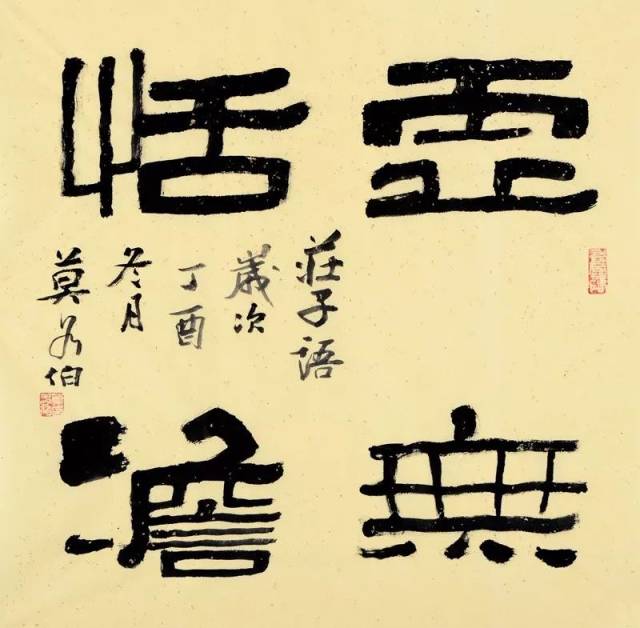 虛無
恬澹
莊子語
歲次
丁酉
冬月
莫伯